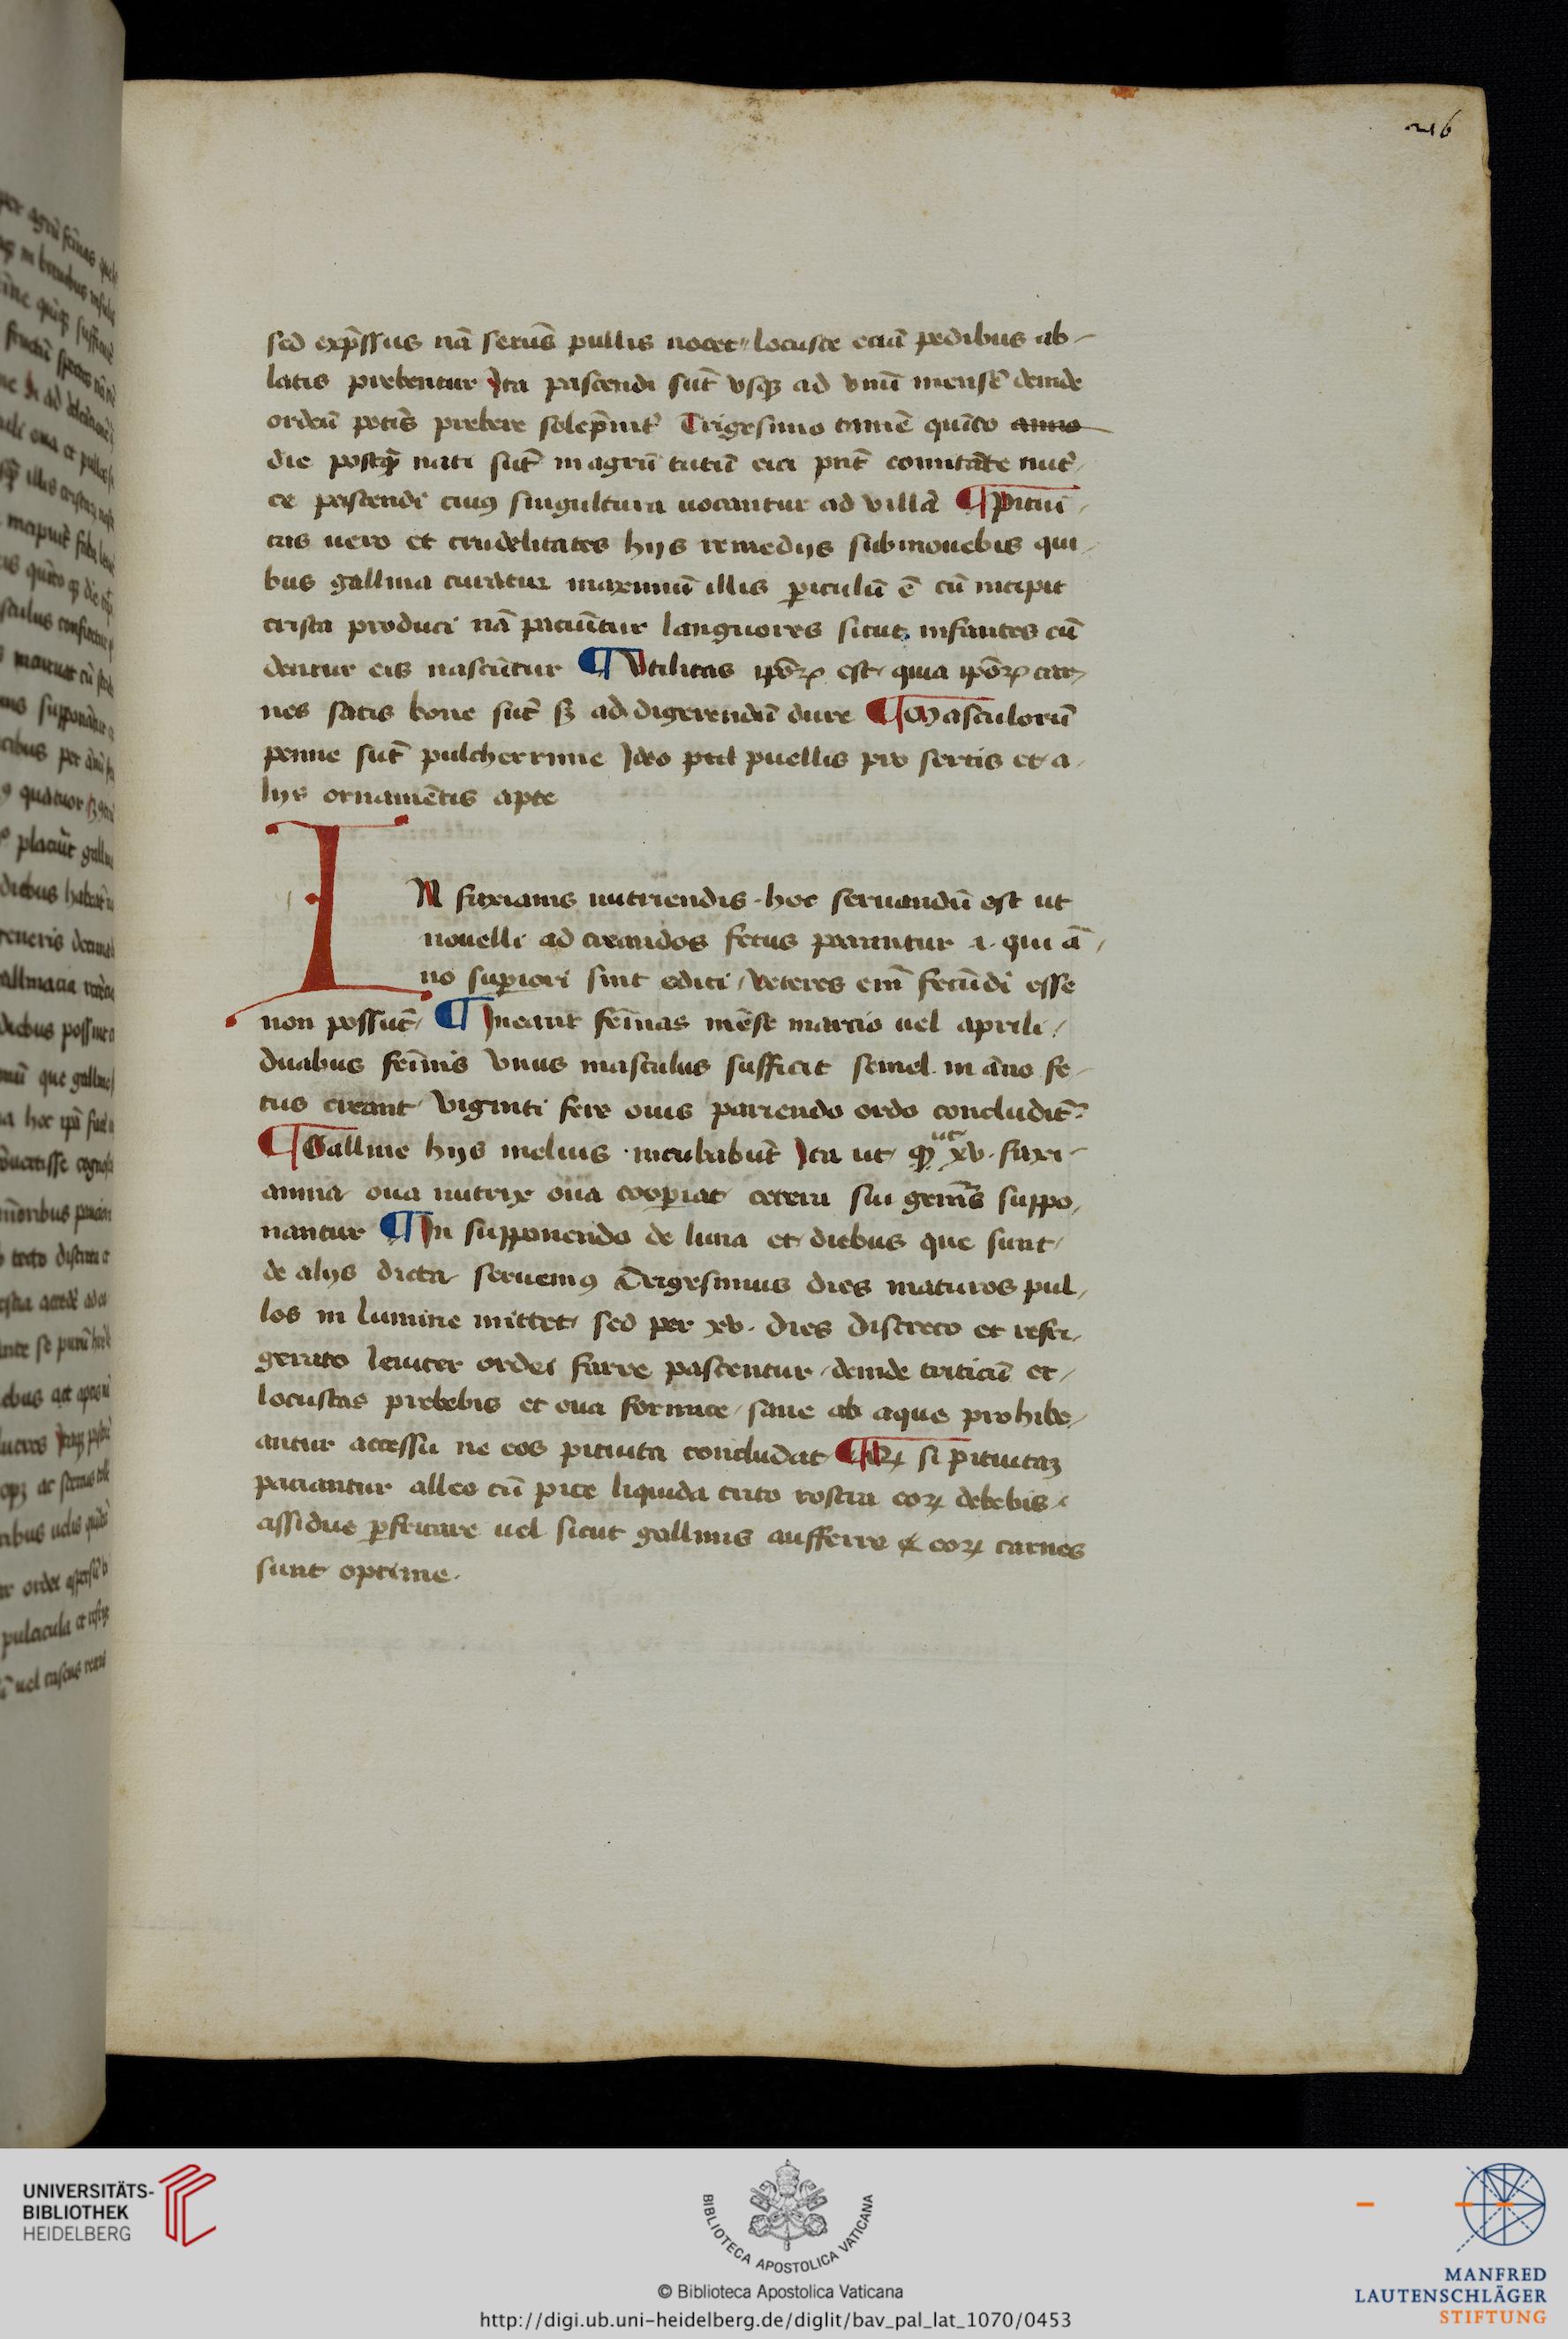 216
sed exp̄ssus nā serūs pullis nocet locuste eciā pedibus ab-
latis prebentur Ita pascendi sūt vsqꝫ ad vnū mensē deinde
ordeū potiꝰ prebere Trigesimo tamē quīto anno
die postqꝫ nati sūt in agrū tutiū eici pn̄t comitāte nut
ce pascendi cuiꝰ singultura uocantur ad villā ¶ Pitui
tas uero et crudelitates hijs remedijs submouebis qui
bus gallina curātur maximū illis ꝑiculū ē cū incipit
crista produci nā paciūntur languores sicut infantes cū
dentur eis nascūntur ¶ Vtilitas ip̄oꝝ est quia ip̄oꝝ car
nes satis bone sūt sꝫ ad digerendū dure ¶ Masculorū
penne sūt pulcherrime Ideo puellis pro sertis et a
lijs ornamētis apte
IN faxianis nutriendis hoc seruandū est ut
nouelli ad creandos fetus parantur .i. qui ā
no suꝑiori sint editi veteres em̄ fecūdi esse
non possūt ¶ Ineant fēinas mēse marcio uel aprili
duabus fēinis vnus masculus sufficit semel in āno fe
tus creant viginti fere ouis pariendo ordo concluditꝰ
¶ Galline hijs melius incubabūt Ita ut xv faxi
anina oua nutrix oua cooꝑiat cetera sui genīs suppo
nantur ¶ In supponendo de luna et diebus que sunt
de alijs dicta seruemꝰ Trigesimus dies maturos pul
los in lumine mittet sed per xv dies discreto et refri
gerato leuiter ordei farre pascentur deinde triticū et
locustas prebebis et oua formice sane ab aque prohibe
antur accessu ne eos pituita concludat ¶ Qꝫ si pituitaꝫ
paciantur alleo cū pice liquida trito rostra eoꝝ debebis
assidue ꝑfricare uel sicut gallinis aufferre & eoꝝ carnes
sunt optime.
UNIVERSITÄTS-
BIBLIOTHEK
HEIDELBERG
BIBLIOTECA APOSTOLICA VATICANA
© Biblioteca Apostolica Vaticana
http://digi.ub.uni-heidelberg.de/diglit/bav_pal_lat_1070/0453
MANFRED
LAUTENSCHLÄGER
STIFTUNG